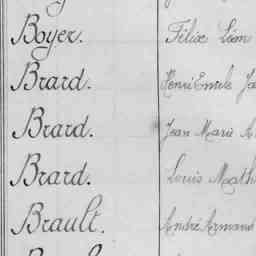 Boyer. Félix Léon
Brard. Henri Emile
Brard. Jean Marie
Brard. Louis
Brault. André Armand